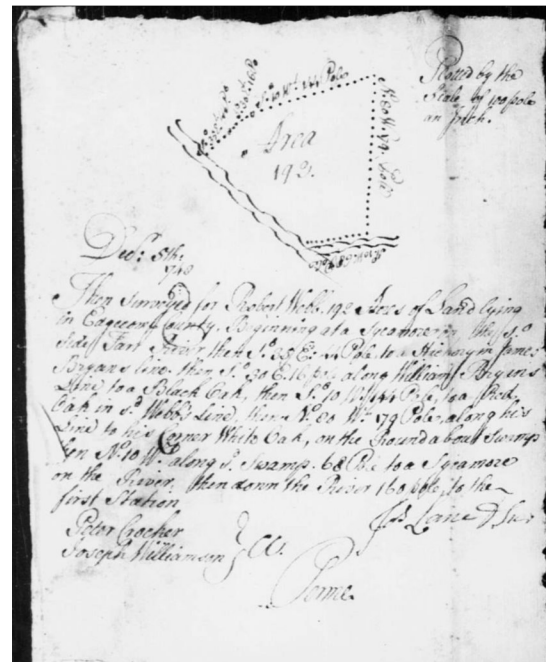 Plotted by the
Scale of 100 pole
an Inch.
So. 10 Wt. 144 Pole
No. 80 Wt. 179 Pole
Area
192.
Decr. 5th.
1740
Then Surveyed for Robert Webb 192 Acres of Land lying
in Edgecomb County. Beginning at a Sycamore on the So.
Side Tarr River, then So. 25 E. 44 Pole to a Hickory in James
Bryans line. then So. 30 E. 16 pole along William Bryans
Line to a Black Oak, then So. 10 Wt. 144 Pole, to a Red
Oak in sd. Webb's Line, then No. 80 Wt. 179 Pole, along his
Line to his Corner White Oak, on the Round about Swamp
then No. 10 Wt. along sd. Swamp. 68 Pole to a Sycamore
on the River, then down the River 160 pole, to the
first Station
Peter Crocker
Joseph Williamson
Jos. Lane D Sur